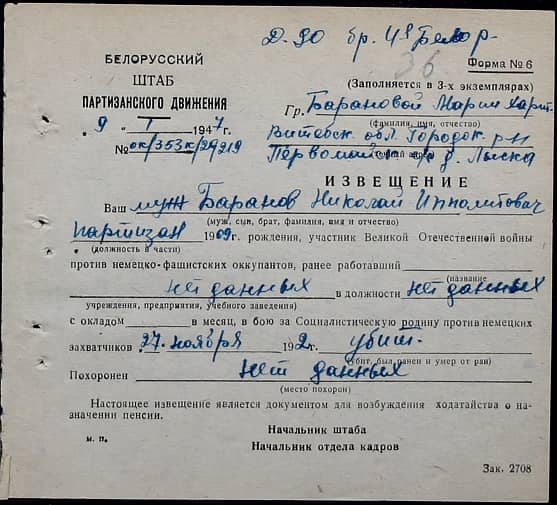 Д-90 бр. 41 Бел
36
Форма № 6
БЕЛОРУССКИЙ
ШТАБ
ПАРТИЗАНСКОГО ДВИЖЕНИЯ
„9 “ I 1947 г.
№ ок/353к/29219
(Заполняется в 3-х экземплярах)
Гр. Барановой Марии Харит.
(фамилия, имя, отчество)
Витебск. обл. Городок. р-н
Первомайск д.
ИЗВЕЩЕНИЕ
Ваш муж Баранов Николай Ипполитович
(муж, сын, брат, фамилия, имя и отчество)
партизан 1909 г. рождения, участник Великой Отечественной войны
(должность в части)
против немецко-фашистских оккупантов, ранее работавший
(название
нет данных в должности нет данных
учреждения, предприятия, учебного заведения)
с окладом в месяц, в бою за Социалистическую родину против немецких
захватчиков 27. ноября 1942 г. убит.
(убит, был ранен и умер от ран)
Похоронен нет данных
(место похорон)
Настоящее извещение является документом для возбуждения ходатайства о на-
значении пенсии.
Начальник штаба
м. п.
Начальник отдела кадров
Зак. 2708